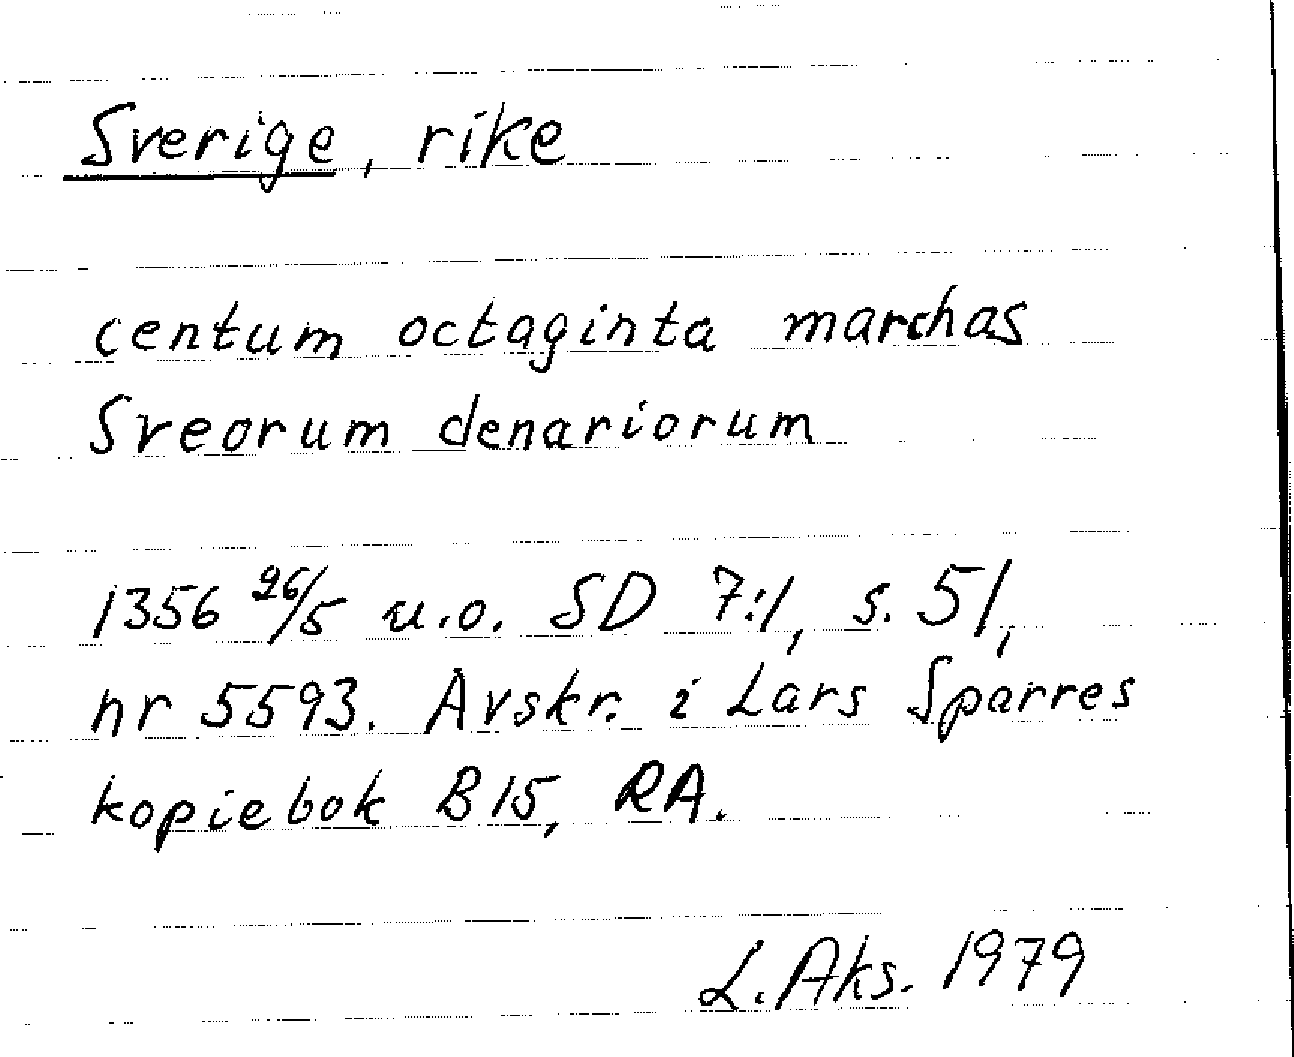 Sverige, rike
centum octaginta marchas
Sveorum denariorum
1356 26/5 u.o. SD 7:1, s. 51,
nr 5593. Avskr. i Lars Sparres
kopiebok B 15, RA.
L. Aks. 1979